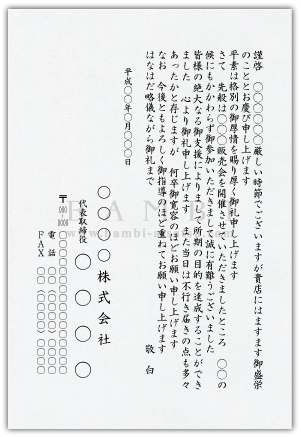 謹啓　〇〇〇〇〇　厳しい時節でございますが貴店にはますます御盛栄
のこととお慶び申し上げます
平素は格別の御厚情を賜り厚く御礼申し上げます
さて　先般は〇〇〇販売会を開催させていただきましたところ　〇〇の
候にもかかわらず御参加いただきまして誠に有難うございました
皆様の絶大なる御支援によりまして所期の目的を達成することができ
ました　心より御礼申し上げます　また当日は不行き届きの点も多々
あったかと存じますが　何卒御寛容のほどお願い申し上げます
なお　今後ともよろしく御指導のほど重ねてお願い申し上げます
はなはだ略儀ながら御礼まで
敬白
平成〇〇年〇月〇〇日
〇〇〇〇株式会社
代表取締役　〇〇〇〇
〒000-0000　〇〇〇〇〇〇〇〇〇〇〇
電話　〇〇（〇〇〇）〇〇〇〇
ＦＡＸ　〇〇（〇〇〇）〇〇〇〇
HANBI